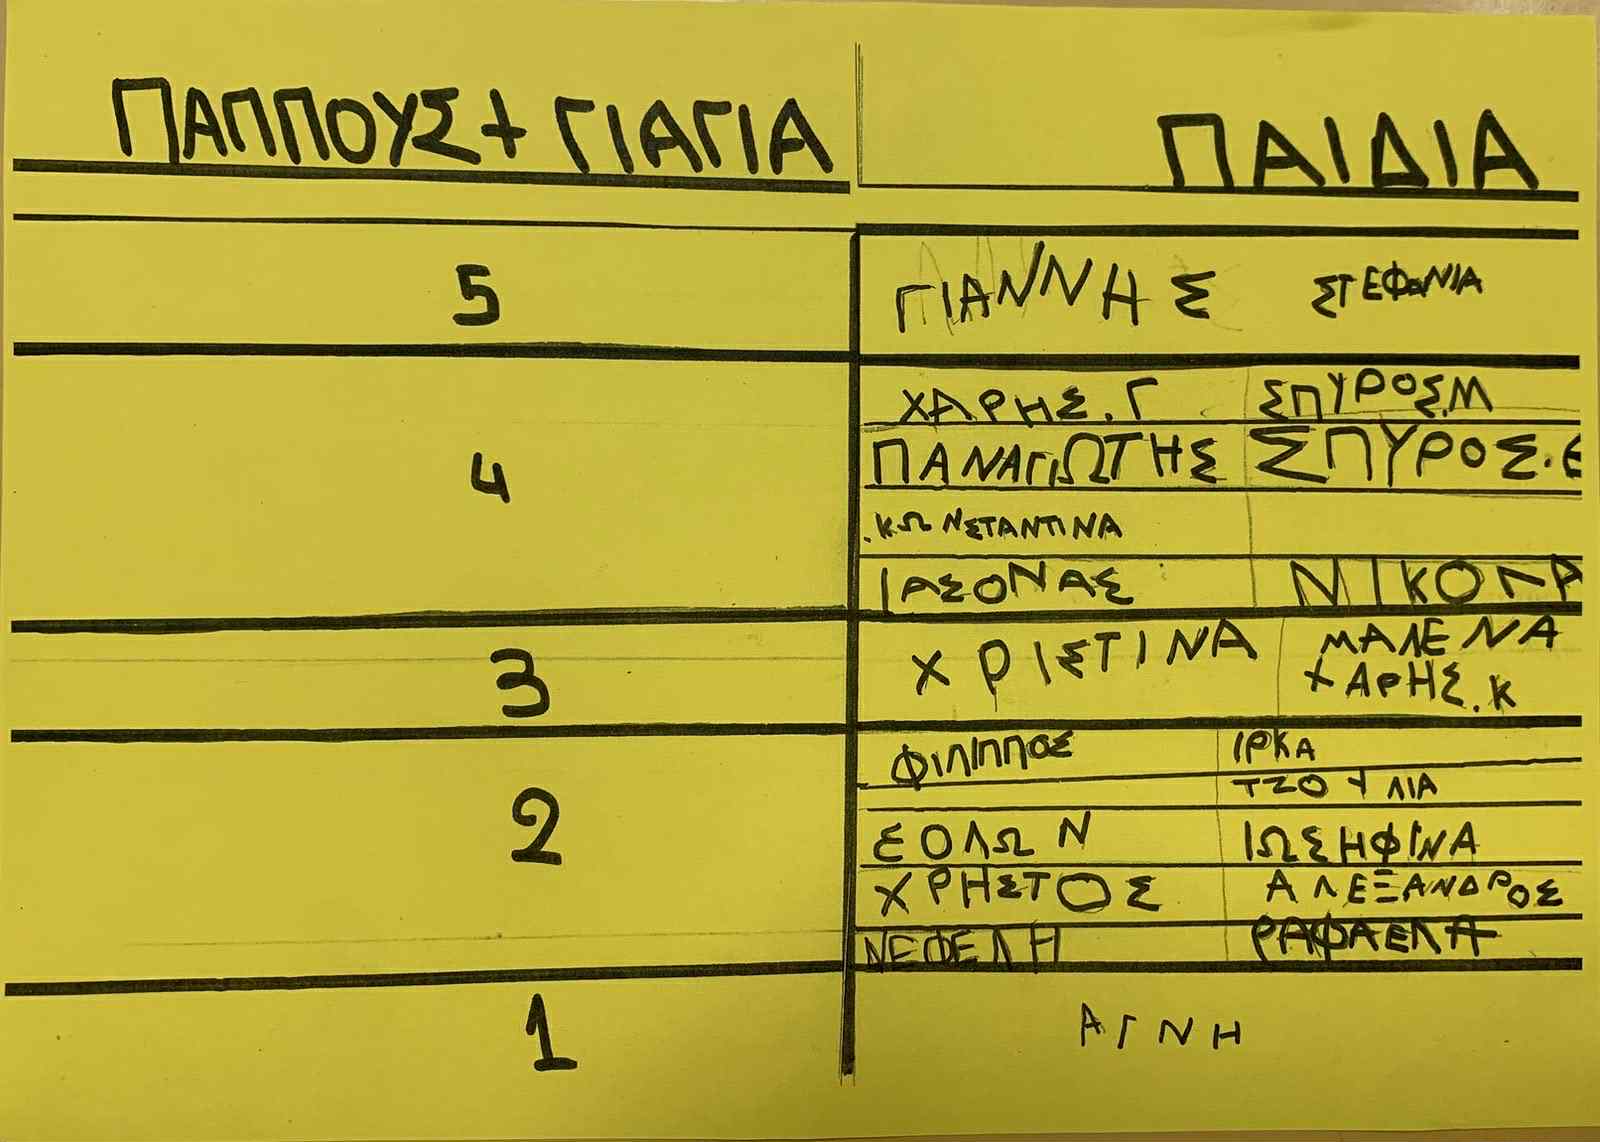 ΠΑΠΠΟΥΣ+ ΓΙΑΓΙΑ ΠΑΙΔΙΑ
5 ΓΙΑΝΝΗΣ ΣΤΕΦΑΝΙΑ
ΧΑΡΗΣ.Γ ΣΠΥΡΟΣ.Μ
4 ΠΑΝΑΓΙΩΤΗΣ ΣΠΥΡΟΣ.Ε
.ΚΩΝΣΤΑΝΤΙΝΑ
ΙΑΣΟΝΑΣ ΝΙΚΟΛΑ
3 ΧΡΙΣΤΙΝΑ ΜΑΛΕΝΑ
ΧΑΡΗΣ.Κ
ΦΙΛΙΠΠΟΣ ΙΡΚΑ
ΤΖΟΥΛΙΑ
2 ΣΟΛΩΝ ΙΩΣΗΦΙΝΑ
ΧΡΗΣΤΟΣ ΑΛΕΞΑΝΔΡΟΣ
ΝΕΦΕΛΗ ΡΑΦΑΕΛΑ
1 ΑΓΝΗ